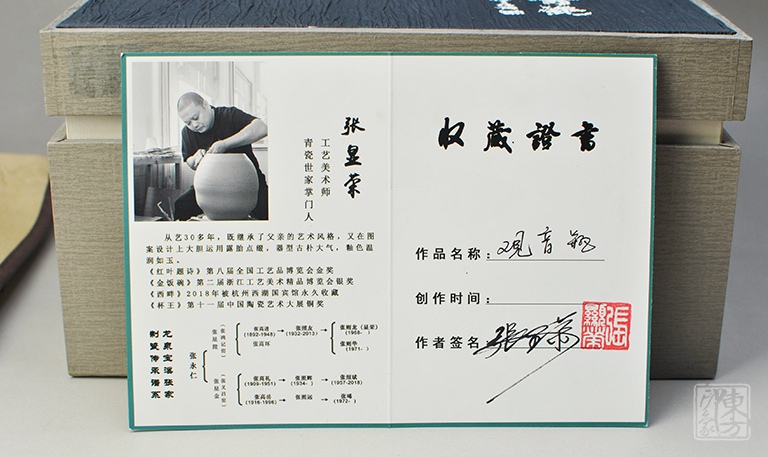 张显荣
工艺美术师
青瓷世家掌门人
从艺30多年，既继承了父亲的艺术风格，又在图
案设计上大胆运用露胎点缀，器型古朴大气，釉色温
润如玉。
《红叶题诗》第八届全国工艺品博览会金奖
《金饭碗》第二届浙江工艺美术精品博览会银奖
《西畔》2018年被杭州西湖国宾馆永久收藏
《杯王》第十一届中国陶瓷艺术大展铜奖
龙泉宝溪张家
制瓷传承谱系
张永仁
张高进
(1892-1948)
张绍友
(1932-2013)
张则龙（显荣）
(1968- )
张高环
张则华
(1971- )
张高礼
(1909-1951)
张照辉
(1934- )
张绍斌
(1957-2018)
张高岳
(1916-1996)
张照远
(1972- )
收藏證書
作品名称：观音瓶
创作时间：
作者签名：张显荣
張顯榮
東方